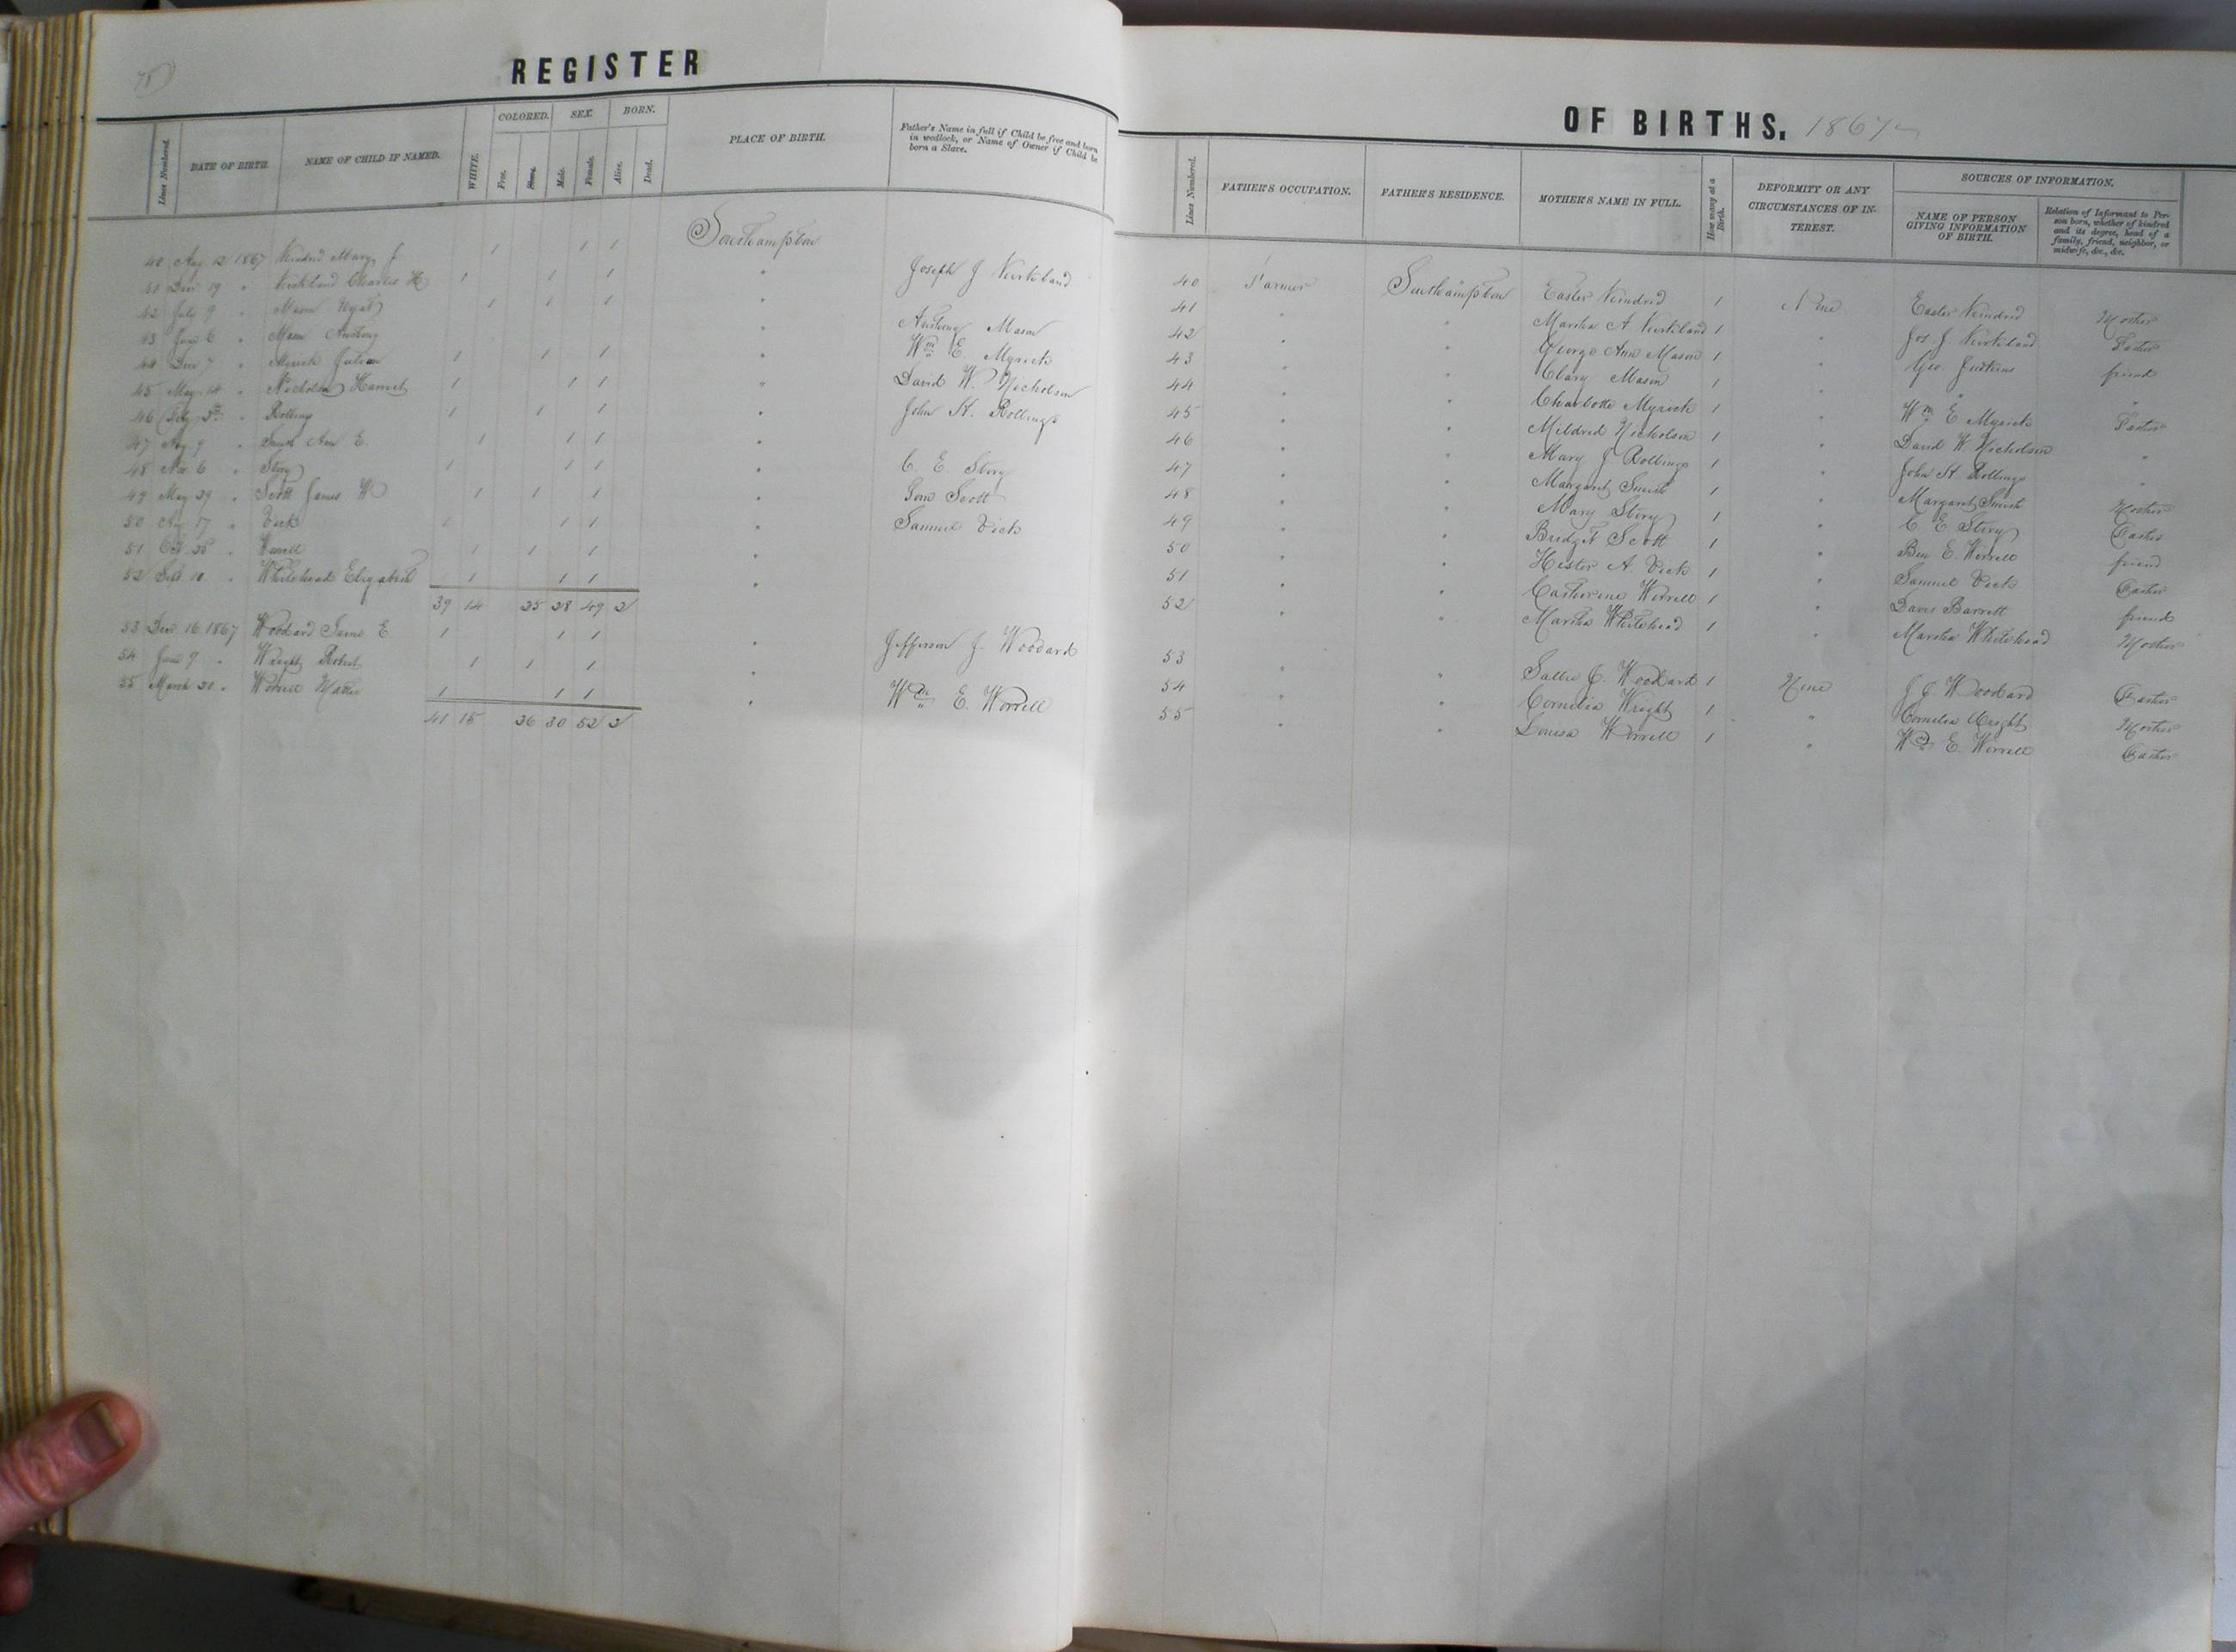 REGISTER
WHITE. COLORED. SEX. BORN.
Lines Numbered. DATE OF BIRTH. NAME OF CHILD IF NAMED. Free. Slave. Male. Female. Alive. Dead. PLACE OF BIRTH. Father's Name in full if Child be free and born in wedlock, or Name of Owner if Child be born a Slave.
40 Aug 12 1867 Kindred Mary J 1 1 1 Southampton
41 Dec 19 " Kirkland Charles H 1 1 1 " Joseph J Kirkland
42 July 9 " Mason 1 1 1 "
43 6 " Mason Anthony " Anthony Mason
44 Dec 7 " Myrick 1 1 1 " Wm E. Myrick
45 May 14 " Nicholson Harriet 1 1 1 " David W. Nicholson
46 " Rollings 1 1 1 " John H. Rollings
47 Aug 9 " Smith Ann E. 1 1 1 "
48 Nov 6 " Story 1 1 1 " C. E. Story
49 May 29 " Scott James W 1 1 1 " Scott
50 Aug 17 " Vick 1 1 1 " Samuel Vick
51 Oct 25 " Worrell 1 1 1 "
52 Sept 10 " Whitehead Elizabeth 1 1 1 "
39 14 25 28 49 2
53 Dec 16 1867 Woodard E 1 1 1 " Jefferson J. Woodard
54 June 9 " Wright Robert 1 1 1 "
55 March 20 " Worrell 1 1 1 " Wm E. Worrell
41 15 26 30 52 2
OF BIRTHS. 1867
SOURCES OF INFORMATION.
Lines Numbered. FATHER'S OCCUPATION. FATHER'S RESIDENCE. MOTHER'S NAME IN FULL. How many at a Birth. DEFORMITY OR ANY CIRCUMSTANCES OF INTEREST. NAME OF PERSON GIVING INFORMATION OF BIRTH. Relation of Informant to Person born, whether of kindred and its degree, head of a family, friend, neighbor, or midwife, &c., &c.
40 Farmer Southampton Easter Kindred 1 None Easter Kindred Mother
41 " " Martha A Kirkland 1 " Jos. J Kirkland Father
42 " " George Ann Mason 1 " Geo. Judkins friend
43 " " Clary Mason 1 " " "
44 " " Charlotte Myrick 1 " Wm E Myrick Father
45 " " Mildred Nicholson 1 " David W Nicholson "
46 " " Mary J Rollings 1 " John H Rollings "
47 " " Margaret Smith 1 " Margaret Smith Mother
48 " " Mary Story 1 " C E Story Father
49 " " Bridget Scott 1 " Ben E. Worrell friend
50 " " Hester A. Vick 1 " Samuel Vick Father
51 " " Catherine Worrell 1 " Davis Barrett friend
52 " " Martha Whitehead 1 " Martha Whitehead Mother
53 " " Sallie C. Woodard 1 None J J Woodard Father
54 " " Cornelia Wright 1 " Cornelia Wright Mother
55 " " Louisa Worrell 1 " Wm E Worrell Father